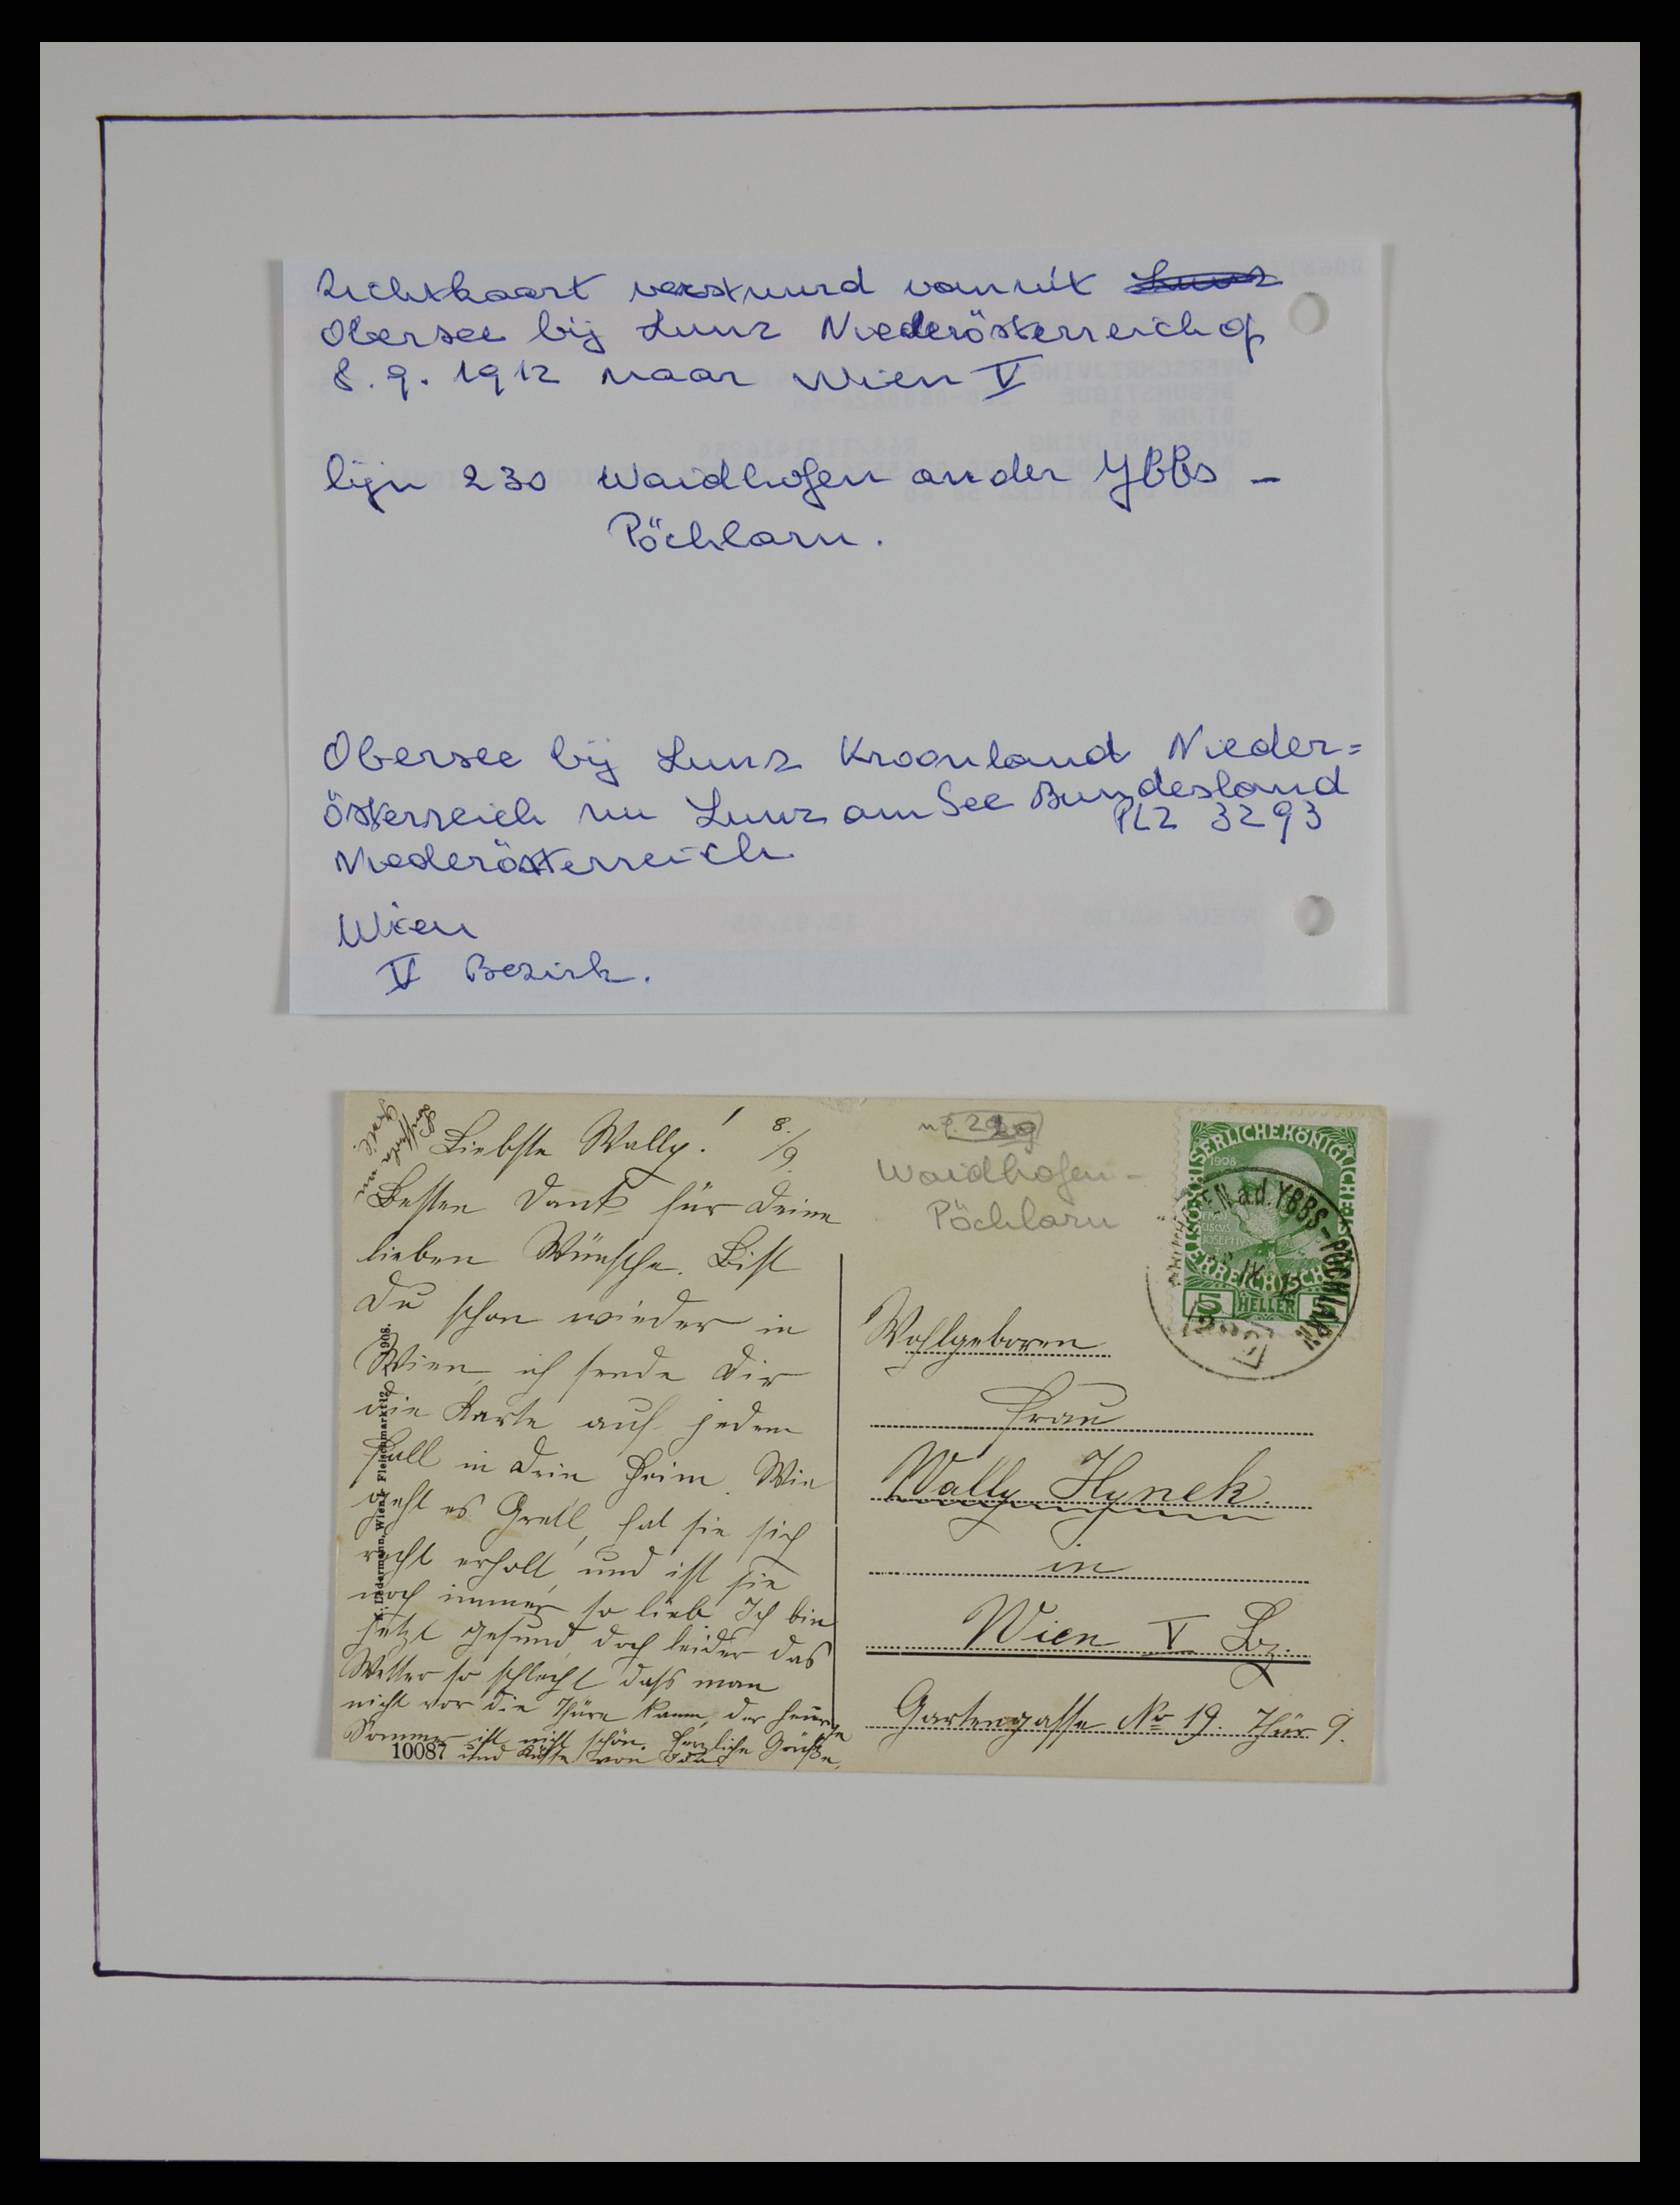 Zichtkaart verstuurd vanuit
Obersee bij Lunz Niederösterreich op
8.9.1912 naar Wien V
lijn 230 Waidhofen an der Ybbs -
Pöchlarn.
Obersee bij Lunz Kroonland Nieder=
österreich nu Lunz am See Bundesland
PLZ 3293
Niederösterreich
Wien
V Bezirk.
Liebste Wally! 8./9.
Besten Dank für Deine
lieben Wünsche. Bist
Du schon wieder in
Wien, ich sende Dir
die Karte auf jeden
Fall in Dein Heim. Wie
geht es Gretl, hat sie sich
recht erholt, und ist sie
noch immer so lieb. Ich bin
jetzt gesund, doch leider das
Wetter so schlecht dass man
nicht vor die Thüre kann, der heurige
Sommer ist nicht schön. Herzliche Grüße
und Küsse von
10087
Wien I. Fleischmarkt 12. 1908.
Waidhofen -
Pöchlarn
KAISERLICHE KÖNIGLICHE ÖSTERREICHISCHE
1908
5 HELLER 5
EN a.d. YBBS-PÖCHLARN
IX 12
Wohlgeboren
Frau
Wally Hynek.
in
Wien V Bz.
Gartengasse No 19. Thür 9.